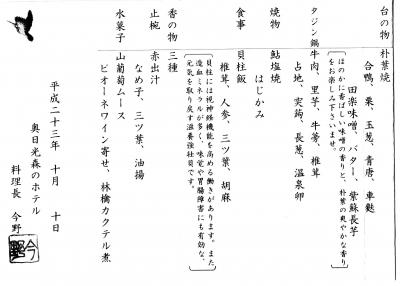 台の物 朴葉焼
合鴨、栗、玉葱、青唐、車麩
田楽味噌、バター、紫蘇長芋
ほのかに香ばしい味噌の香りと、朴葉の爽やかな香り
をお楽しみ下さいませ。
タジン鍋 牛肉、里芋、牛蒡、椎茸
占地、実蒟、長葱、温泉卵
焼物 鮎塩焼
はじかみ
食事 貝柱飯
椎茸、人参、三ツ葉、胡麻
貝柱には視神経機能を高める働きがあります。また
造血ミネラルが多く、味覚や胃腸障害にも有効な、
元気を取り戻す滋養強壮貝です。
香の物 三種
止椀 赤出汁
なめ子、三ツ葉、油揚
水菓子 山葡萄ムース
ピオーネワイン寄せ、林檎カクテル煮
平成二十三年 十月 十日
奥日光森のホテル
料理長 今野